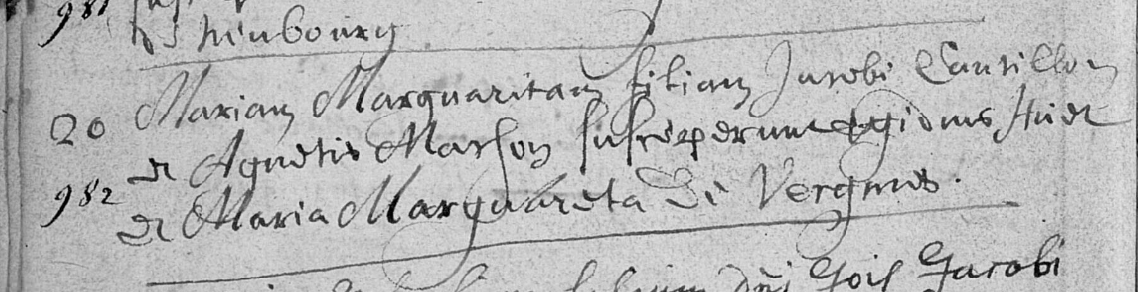 981
Rhinbourg
20 Mariam Marguaritam filiam Jacobi Cantillon
et Agnetis Marson susceperunt egidius Huet
982 et Maria Marguareta de Vergnies.
filium dni Jois Jacobi